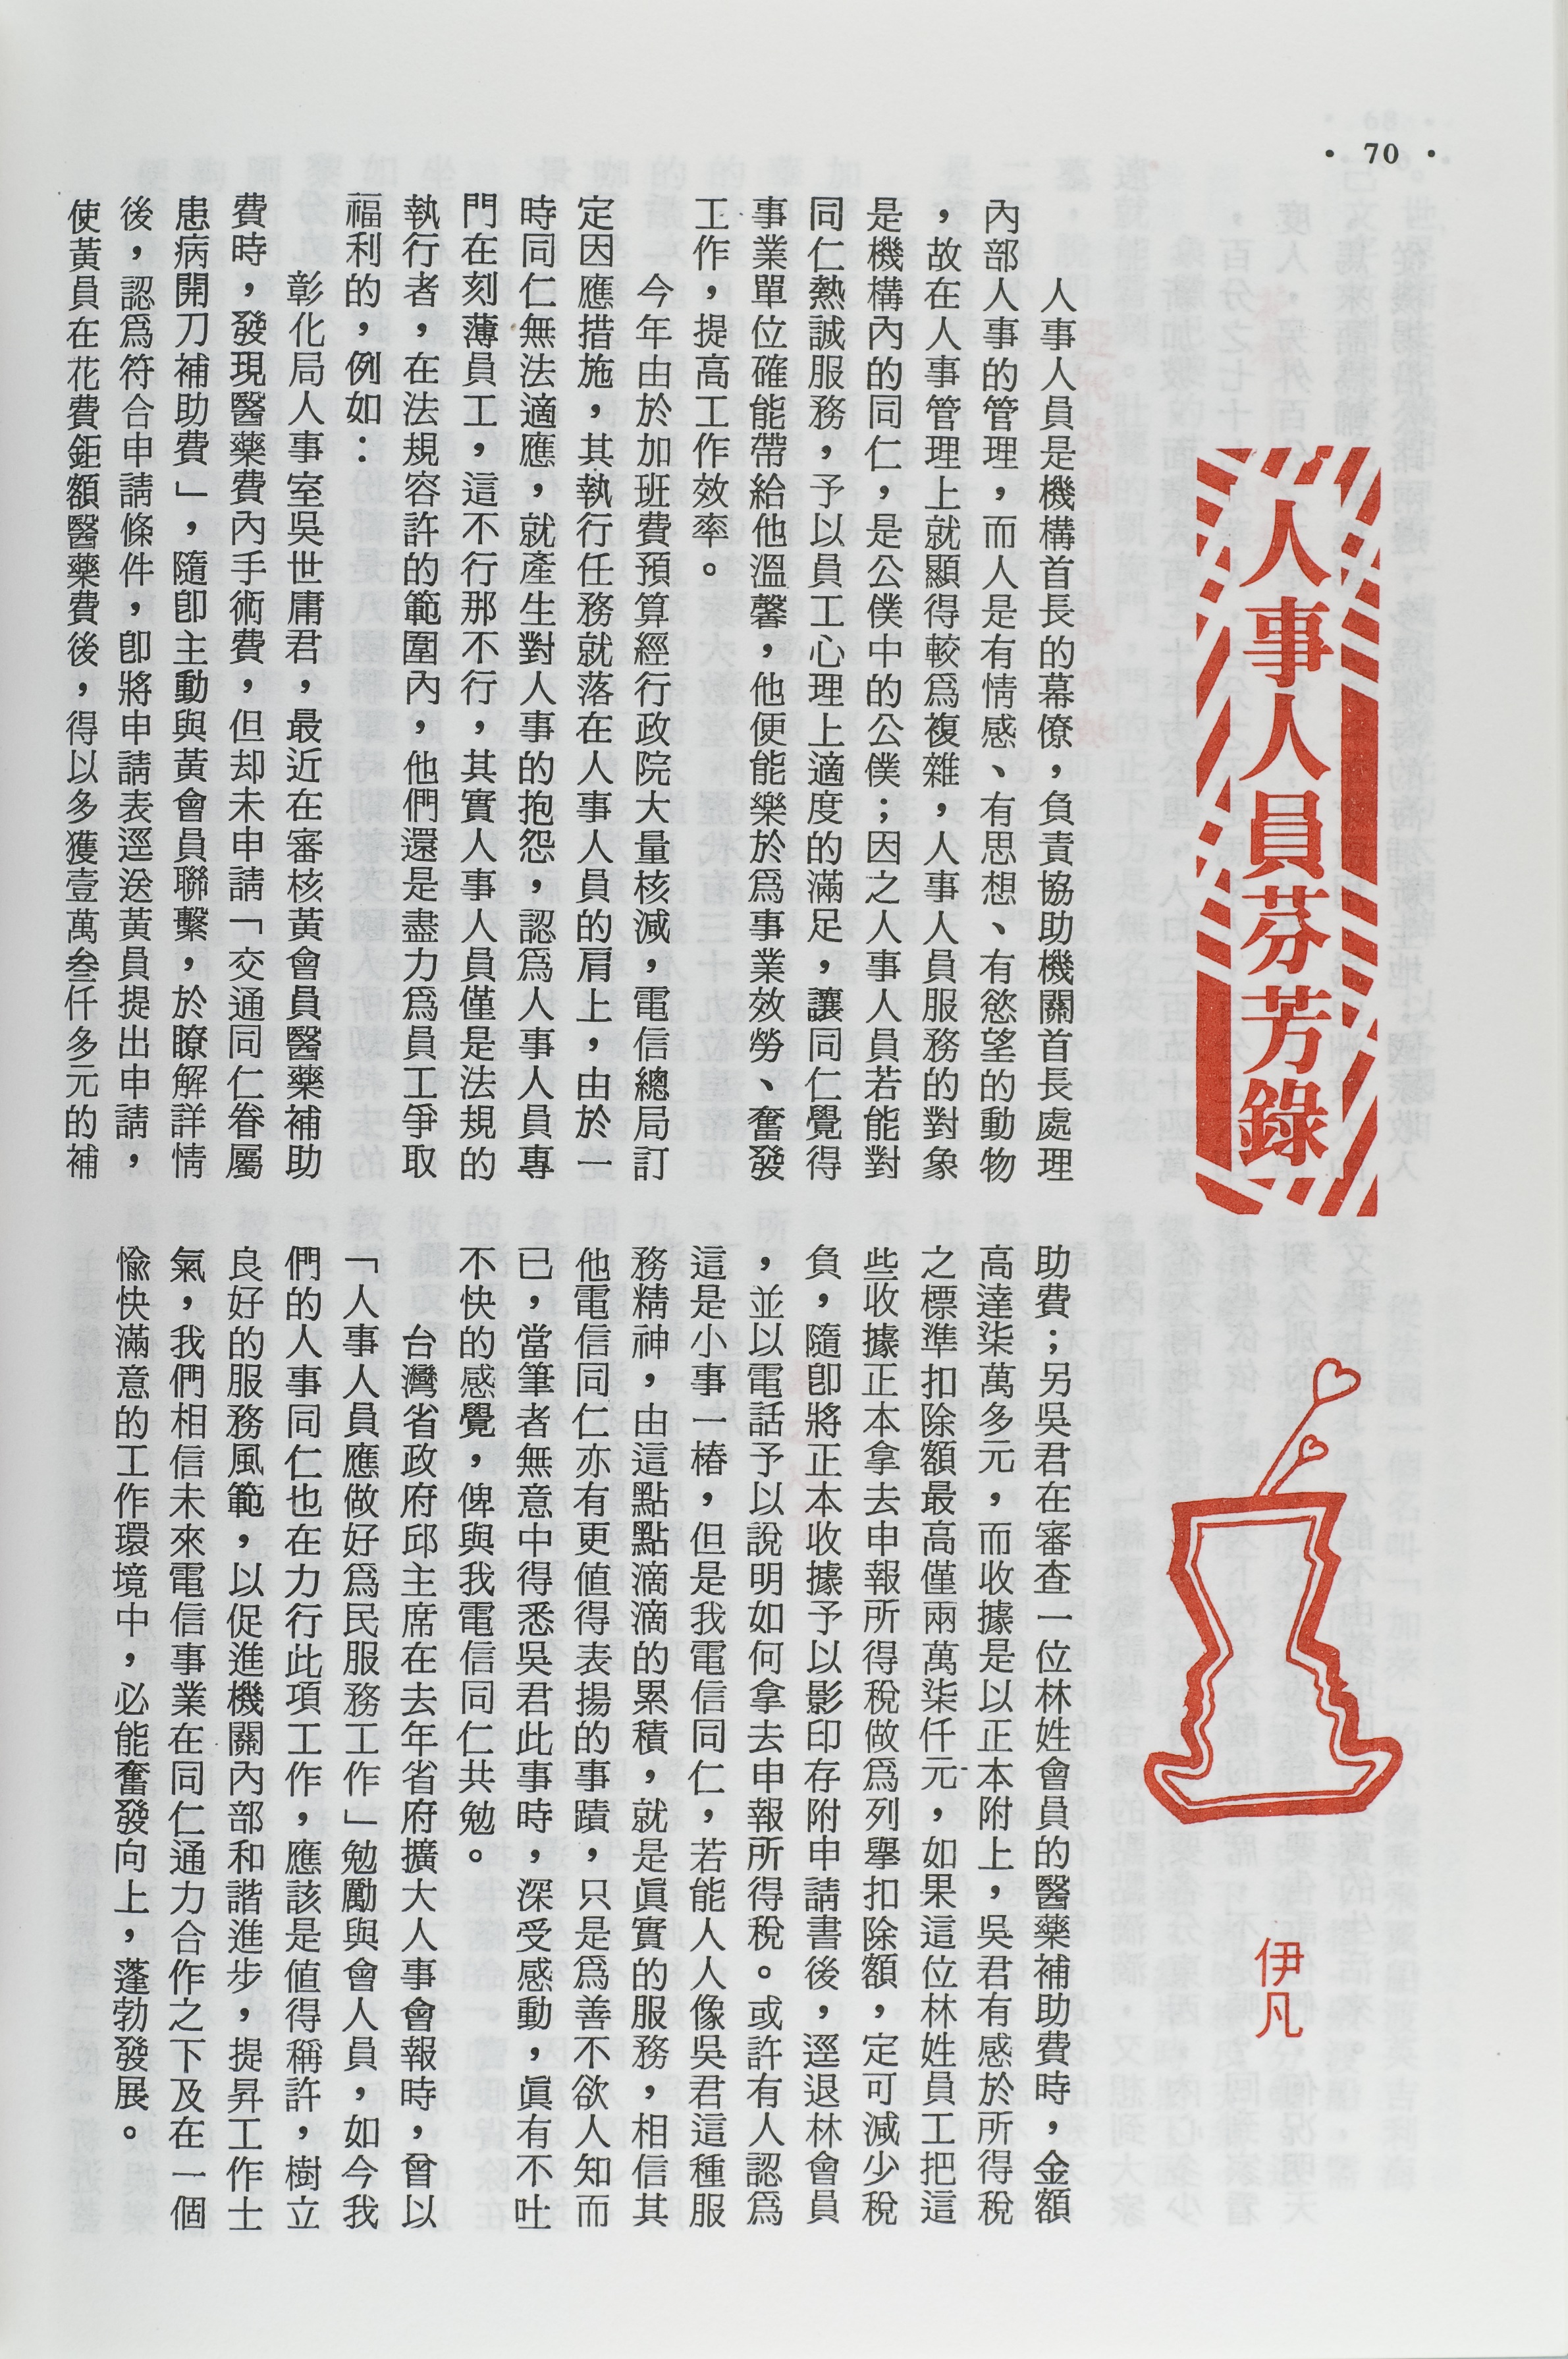 • 70 •
人事人員芬芳錄
伊凡
人事人員是機構首長的幕僚，負責協助機關首長處理
內部人事的管理，而人是有情感、有思想、有慾望的動物
，故在人事管理上就顯得較爲複雜，人事人員服務的對象
是機構內的同仁，是公僕中的公僕；因之人事人員若能對
同仁熱誠服務，予以員工心理上適度的滿足，讓同仁覺得
事業單位確能帶給他溫馨，他便能樂於爲事業效勞、奮發
工作，提高工作效率。
今年由於加班費預算經行政院大量核減，電信總局訂
定因應措施，其執行任務就落在人事人員的肩上，由於一
時同仁無法適應，就產生對人事的抱怨，認爲人事人員專
門在刻薄員工，這不行那不行，其實人事人員僅是法規的
執行者，在法規容許的範圍內，他們還是盡力爲員工爭取
福利的，例如：
彰化局人事室吳世庸君，最近在審核黃會員醫藥補助
費時，發現醫藥費內手術費，但却未申請「交通同仁眷屬
患病開刀補助費」，隨卽主動與黃會員聯繫，於瞭解詳情
後，認爲符合申請條件，卽將申請表逕送黃員提出申請，
使黃員在花費鉅額醫藥費後，得以多獲壹萬叁仟多元的補
助費；另吳君在審查一位林姓會員的醫藥補助費時，金額
高達柒萬多元，而收據是以正本附上，吳君有感於所得稅
之標準扣除額最高僅兩萬柒仟元，如果這位林姓員工把這
些收據正本拿去申報所得稅做爲列舉扣除額，定可減少稅
負，隨卽將正本收據予以影印存附申請書後，逕退林會員
，並以電話予以說明如何拿去申報所得稅。或許有人認爲
這是小事一樁，但是我電信同仁，若能人人像吳君這種服
務精神，由這點點滴滴的累積，就是眞實的服務，相信其
他電信同仁亦有更值得表揚的事蹟，只是爲善不欲人知而
已，當筆者無意中得悉吳君此事時，深受感動，眞有不吐
不快的感覺，俾與我電信同仁共勉。
台灣省政府邱主席在去年省府擴大人事會報時，曾以
「人事人員應做好爲民服務工作」勉勵與會人員，如今我
們的人事同仁也在力行此項工作，應該是值得稱許，樹立
良好的服務風範，以促進機關內部和諧進步，提昇工作士
氣，我們相信未來電信事業在同仁通力合作之下及在一個
愉快滿意的工作環境中，必能奮發向上，蓬勃發展。